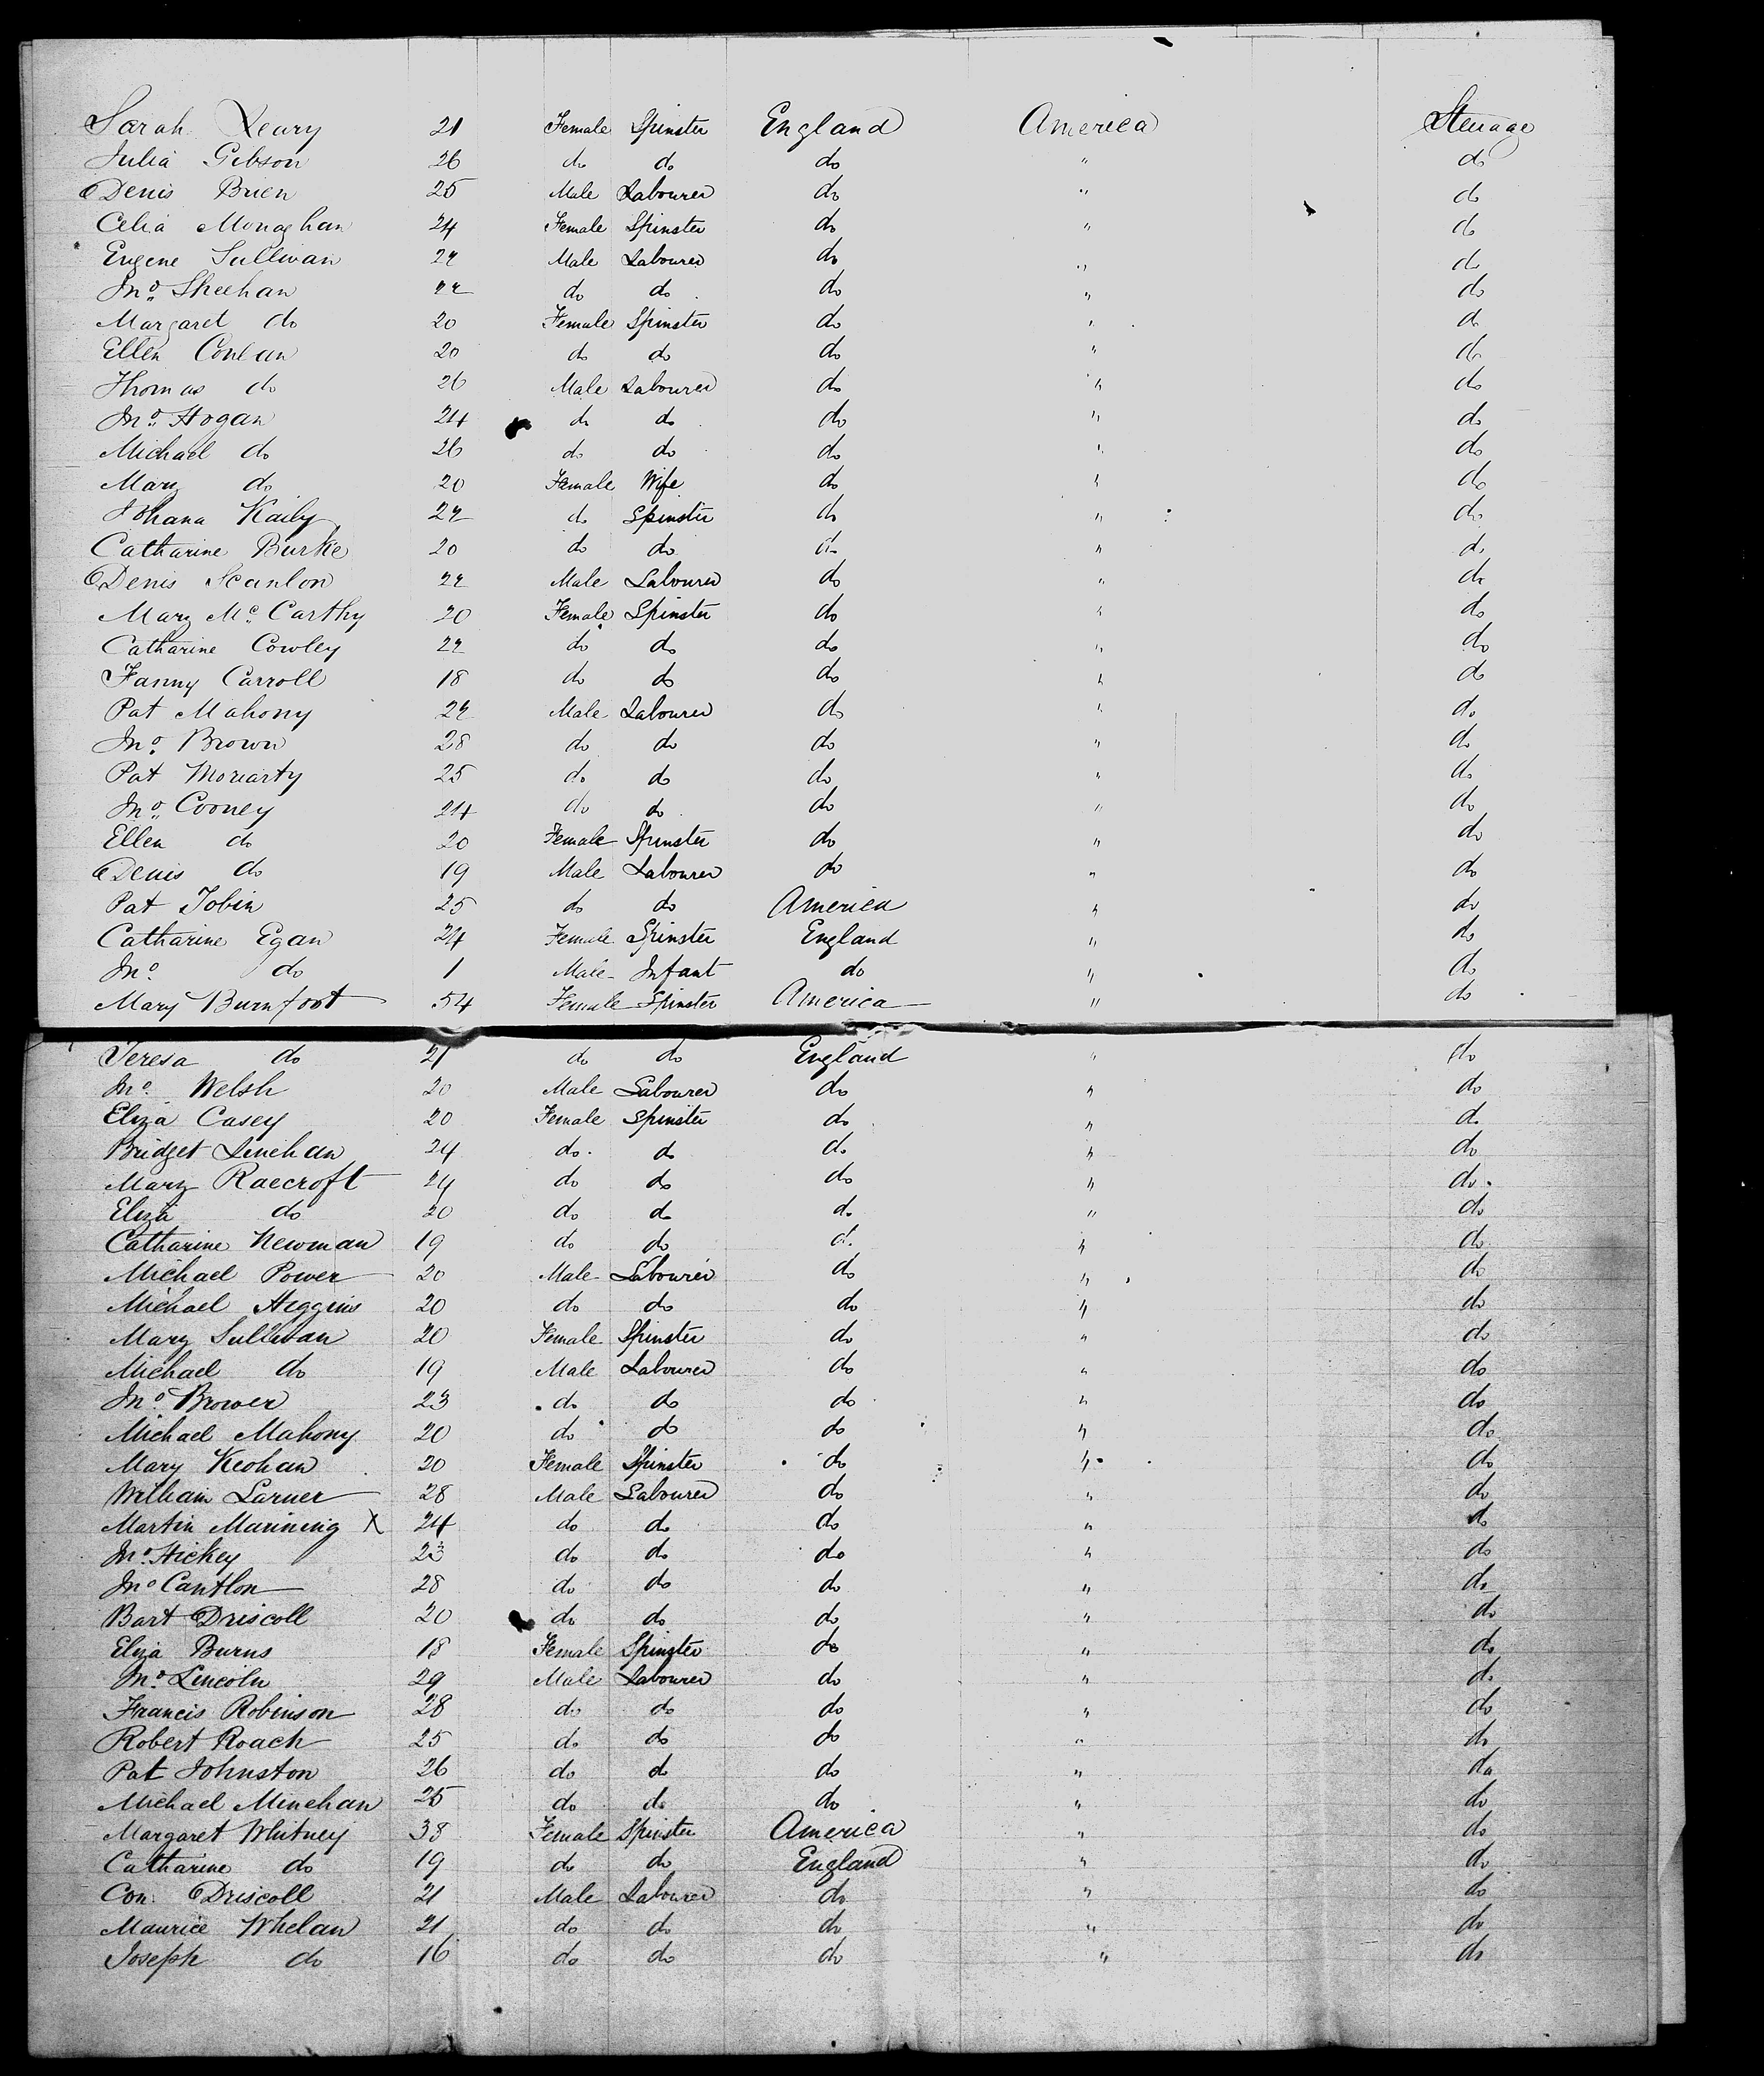 Sarah Leary 21 Female Spinster England America Steerage
Julia Gibson 26 do do do " do
Denis Brien 25 Male Labourer do " do
Celia Monaghan 24 Female Spinster do " do
Eugene Sullivan 22 Male Labourer do " do
Jno. Sheehan 22 do do do " do
Margaret do 20 Female Spinster do " do
Ellen Conlan 20 do do do " do
Thomas do 26 Male Labourer do " do
Jno. Hogan 24 do do do " do
Michael do 26 do do do " do
Mary do 20 Female Wife do " do
Johana Kaily 22 do Spinster do " do
Catharine Burke 20 do do do " do
Denis Scanlon 22 Male Labourer do " do
Mary McCarthy 20 Female Spinster do " do
Catharine Cowley 22 do do do " do
Fanny Carroll 18 do do do " do
Pat Mahony 22 Male Labourer do " do
Jno. Brown 28 do do do " do
Pat Moriarty 25 do do do " do
Jno. Cooney 24 do do do " do
Ellen do 20 Female Spinster do " do
Denis do 19 Male Labourer do " do
Pat Tobin 25 do do America " do
Catharine Egan 24 Female Spinster England " do
Jno. do 1 Male Infant do " do
Mary Burnfoot 54 Female Spinster America " do
Teresa do 21 do do England " do
Jno. Welsh 20 Male Labourer do " do
Eliza Casey 20 Female Spinster do " do
Bridget Linehan 24 do do do " do
Mary Raecroft 24 do do do " do
Eliza do 20 do do do " do
Catharine Newman 19 do do do " do
Michael Power 20 Male Labourer do " do
Michael Higgins 20 do do do " do
Mary Sullivan 20 Female Spinster do " do
Michael do 19 Male Labourer do " do
Jno. Brower 23 do do do " do
Michael Mahony 20 do do do " do
Mary Keohan 20 Female Spinster do " do
William Larner 28 Male Labourer do " do
Martin Manning X 24 do do do " do
Jno. Hickey 23 do do do " do
Jno Cantlon 28 do do do " do
Bart Driscoll 20 do do do " do
Eliza Burns 18 Female Spinster do " do
Jno. Lincoln 29 Male Labourer do " do
Francis Robinson 28 do do do " do
Robert Roach 25 do do do " do
Pat Johnston 26 do do do " do
Michael Minehan 25 do do do " do
Margaret Whitney 38 Female Spinster America " do
Catharine do 19 do do England " do
Con. Driscoll 21 Male Labourer do " do
Maurice Whelan 21 do do do " do
Joseph do 16 do do do " do